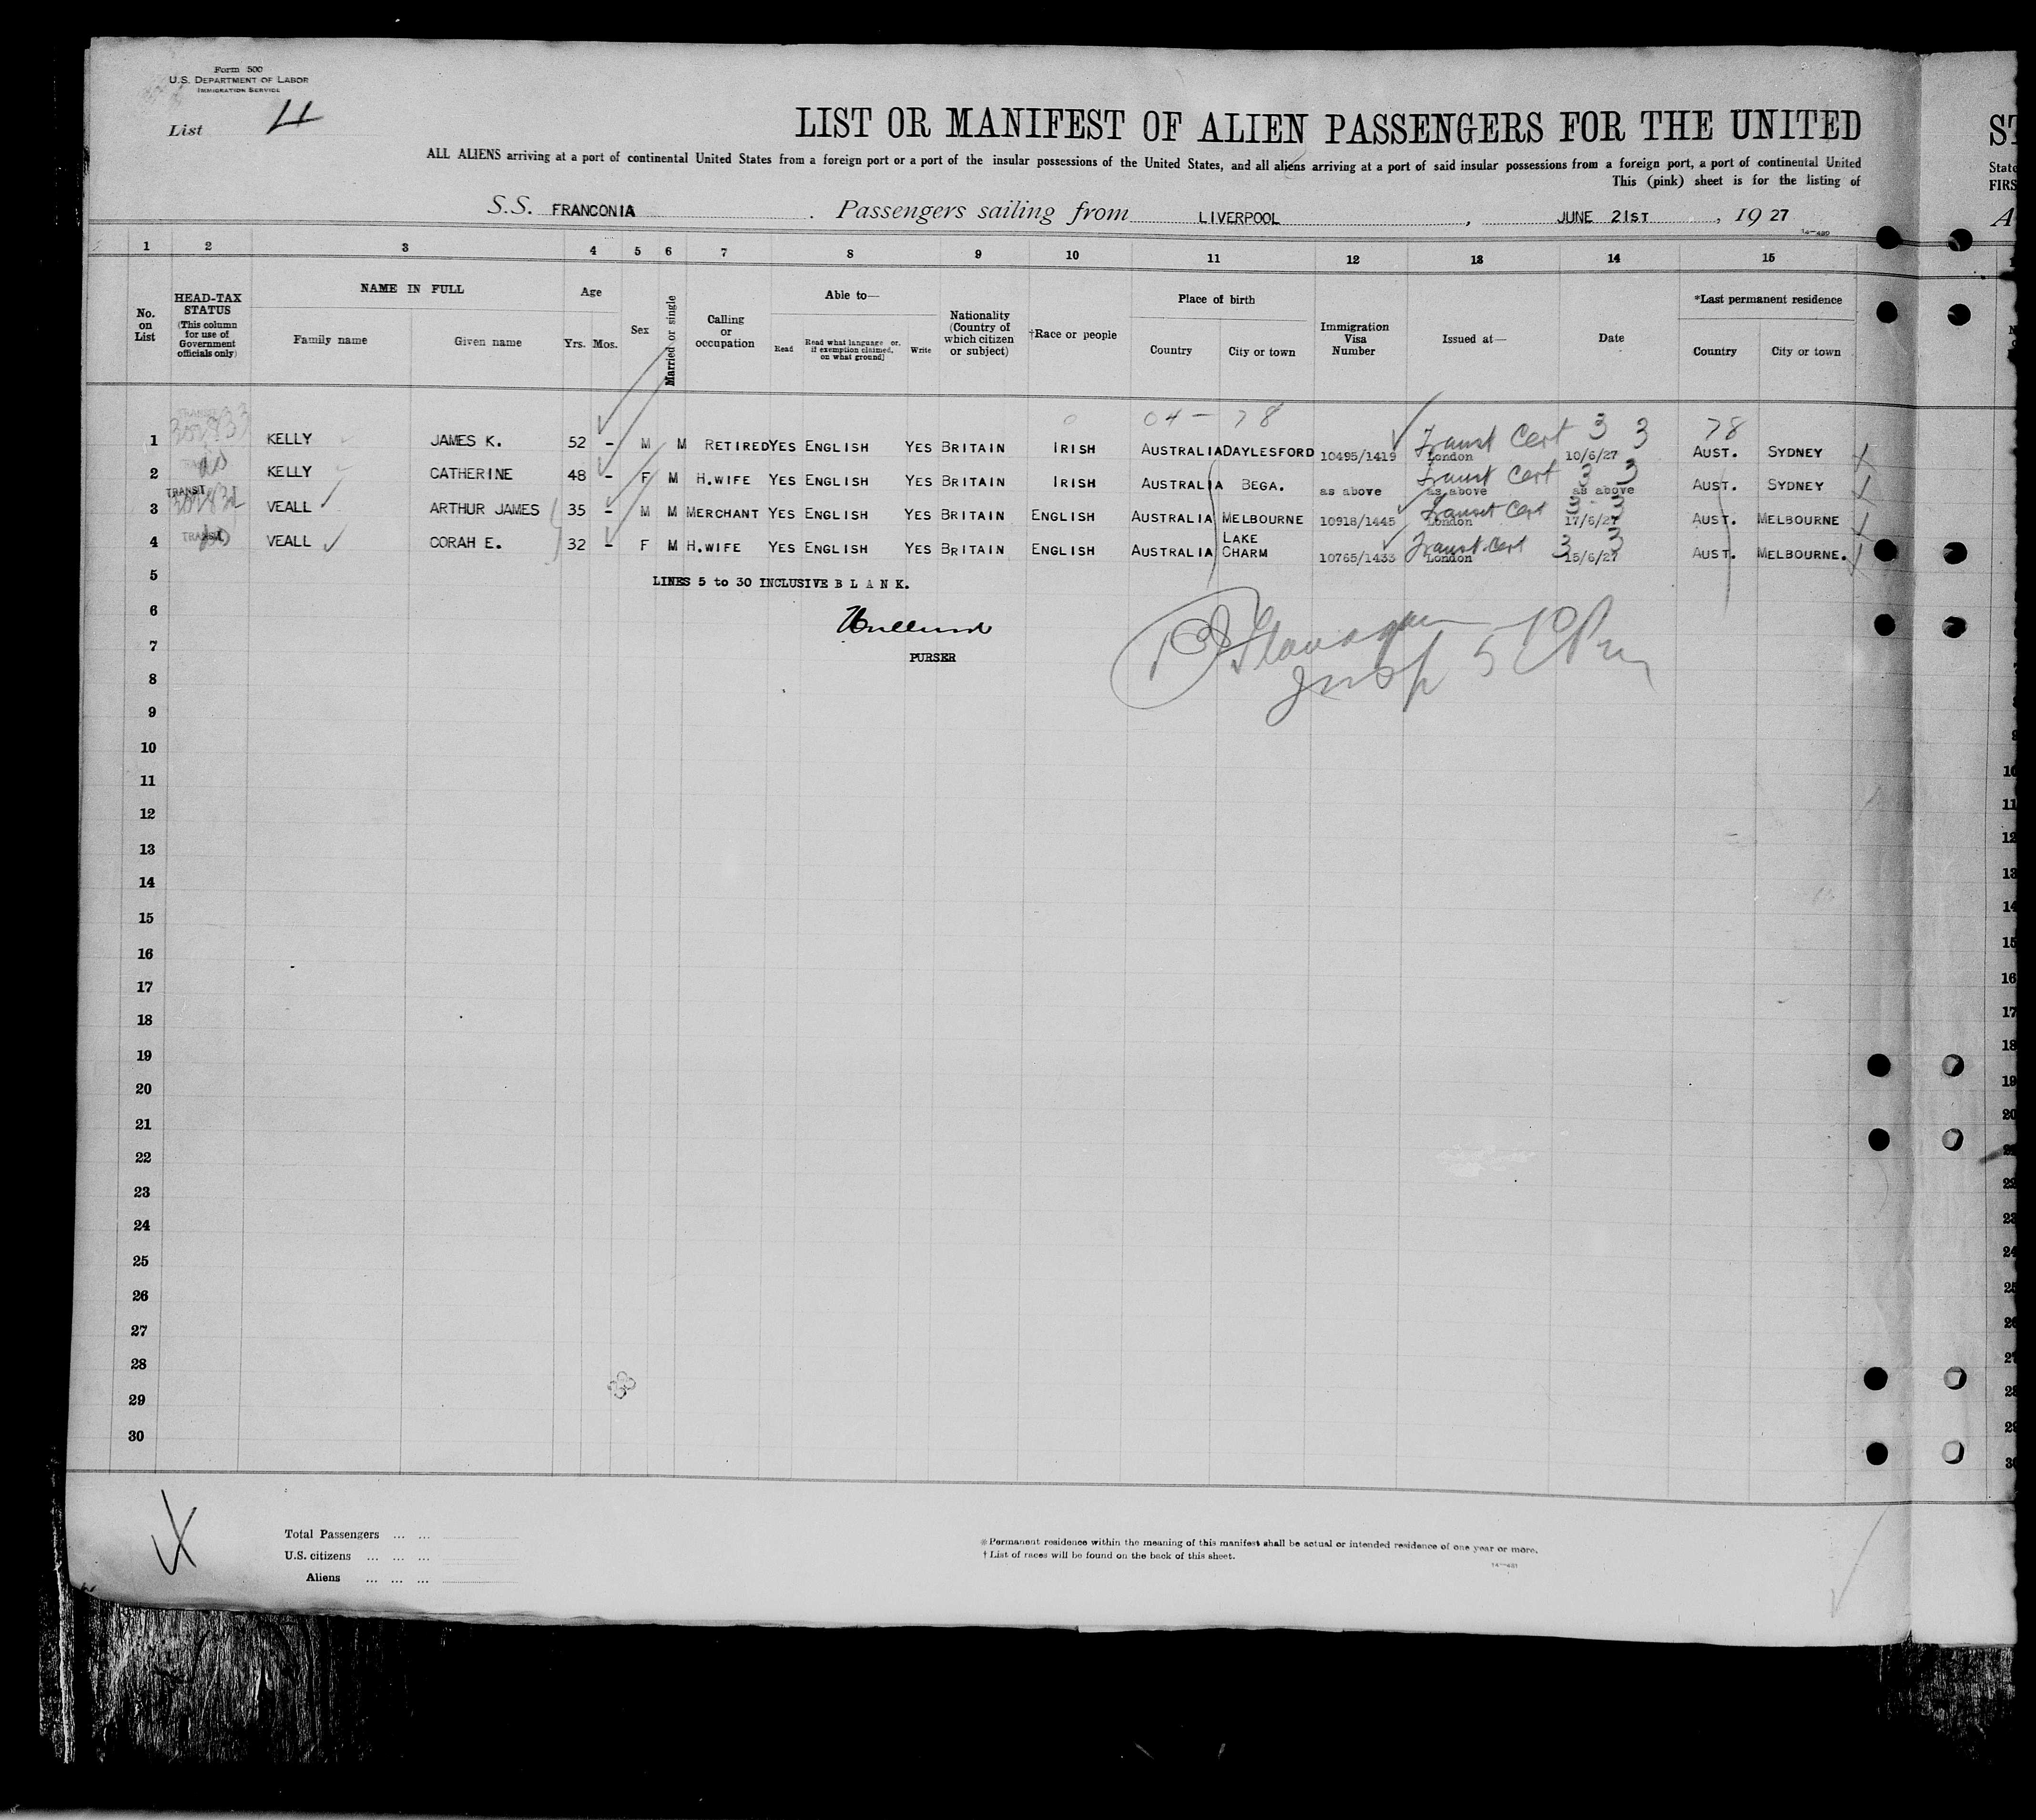 Form 500
U.S. DEPARTMENT OF LABOR
IMMIGRATION SERVICE
List 4
LIST OR MANIFEST OF ALIEN PASSENGERS FOR THE UNITED
ALL ALIENS arriving at a port of continental United States from a foreign port or a port of the insular possessions of the United States, and all aliens arriving at a port of said insular possessions from a foreign port, a port of continental United
This (pink) sheet is for the listing of
S.S. FRANCONIA. Passengers sailing from LIVERPOOL, JUNE 21ST, 19 27
14-480
1 2 3 4 5 6 7 8 9 10 11 12 13 14 15
No. on List
HEAD-TAX STATUS (This column for use of Government officials only)
NAME IN FULL
Family name
Given name
Age
Yrs. Mos.
Sex
Married or single
Calling or occupation
Able to—
Read
Read what language or, if exemption claimed, on what ground)
Write
Nationality (Country of which citizen or subject)
†Race or people
Place of birth
Country
City or town
Immigration Visa Number
Issued at—
Date
*Last permanent residence
Country
City or town
04 - 78
78
1 KELLY JAMES K. 52 - M M RETIRED YES ENGLISH YES BRITAIN IRISH AUSTRALIA DAYLESFORD 10495/1419 Transit Cert London 3 3 10/6/27 AUST. SYDNEY
2 KELLY CATHERINE 48 - F M H.WIFE YES ENGLISH YES BRITAIN IRISH AUSTRALIA BEGA. as above Transit Cert as above 3 3 as above AUST. SYDNEY
3 TRANSIT VEALL ARTHUR JAMES 35 - M M MERCHANT YES ENGLISH YES BRITAIN ENGLISH AUSTRALIA MELBOURNE 10918/1445 Transit Cert London 3 3 17/6/27 AUST. MELBOURNE
4 TRANSIT VEALL CORAH E. 32 - F M H.WIFE YES ENGLISH YES BRITAIN ENGLISH AUSTRALIA LAKE CHARM 10765/1433 Transit Cert London 3 3 15/6/27 AUST. MELBOURNE.
5 LINES 5 to 30 INCLUSIVE B L A N K.
6
7 PURSER
8
9
10
11
12
13
14
15
16
17
18
19
20
21
22
23
24
25
26
27
28
29
30
Total Passengers ... ...
U.S. citizens ... ... ...
Aliens ... ... ...
*Permanent residence within the meaning of this manifest shall be actual or intended residence of one year or more.
†List of races will be found on the back of this sheet.
14-481